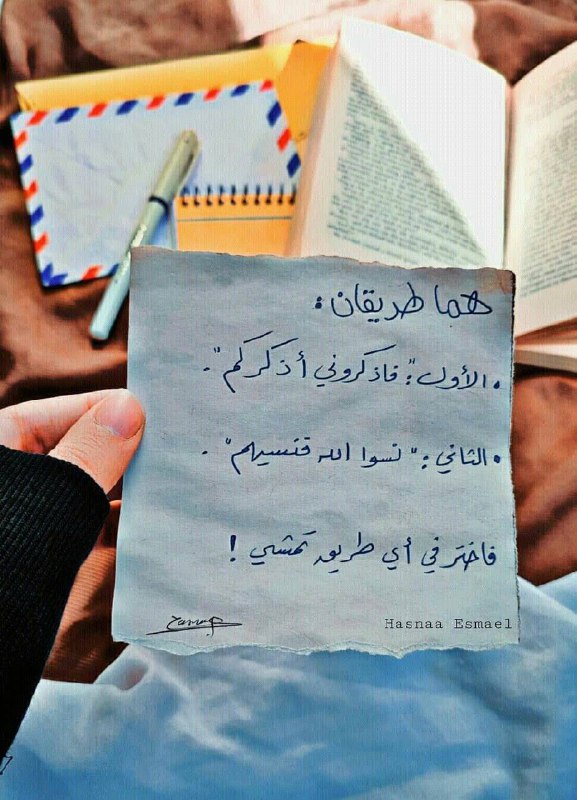 هما طريقان:
• الأول: "فاذكروني أذكركم".
• الثاني: "نسوا الله فنسيهم".
فاختر في أي طريق تمشي!
Hasnaa Esmael